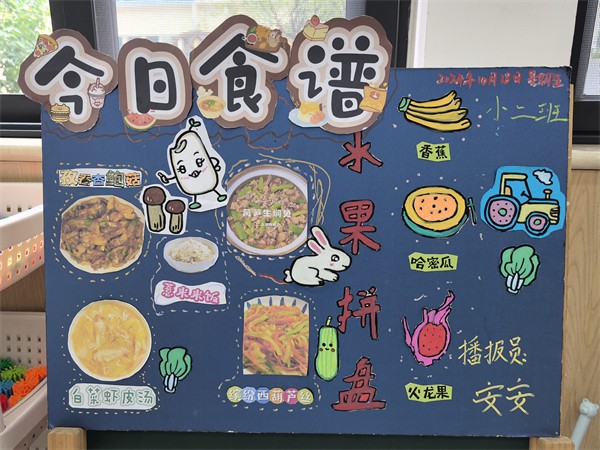 今日食谱
2024年10月18日 星期五
小二班
水果拼盘
香蕉
哈密瓜
火龙果
孜然杏鲍菇
莴笋生焖兔
薏米米饭
白菜虾皮汤
缤纷西葫芦丝
播报员:
安安